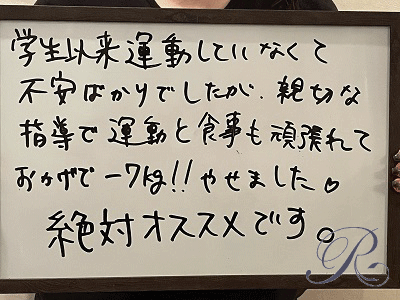 学生以来運動していなくて
不安ばかりでしたが、親切な
指導で運動と食事も頑張れて
おかげで-7kg!!やせました♡
絶対オススメです。
R